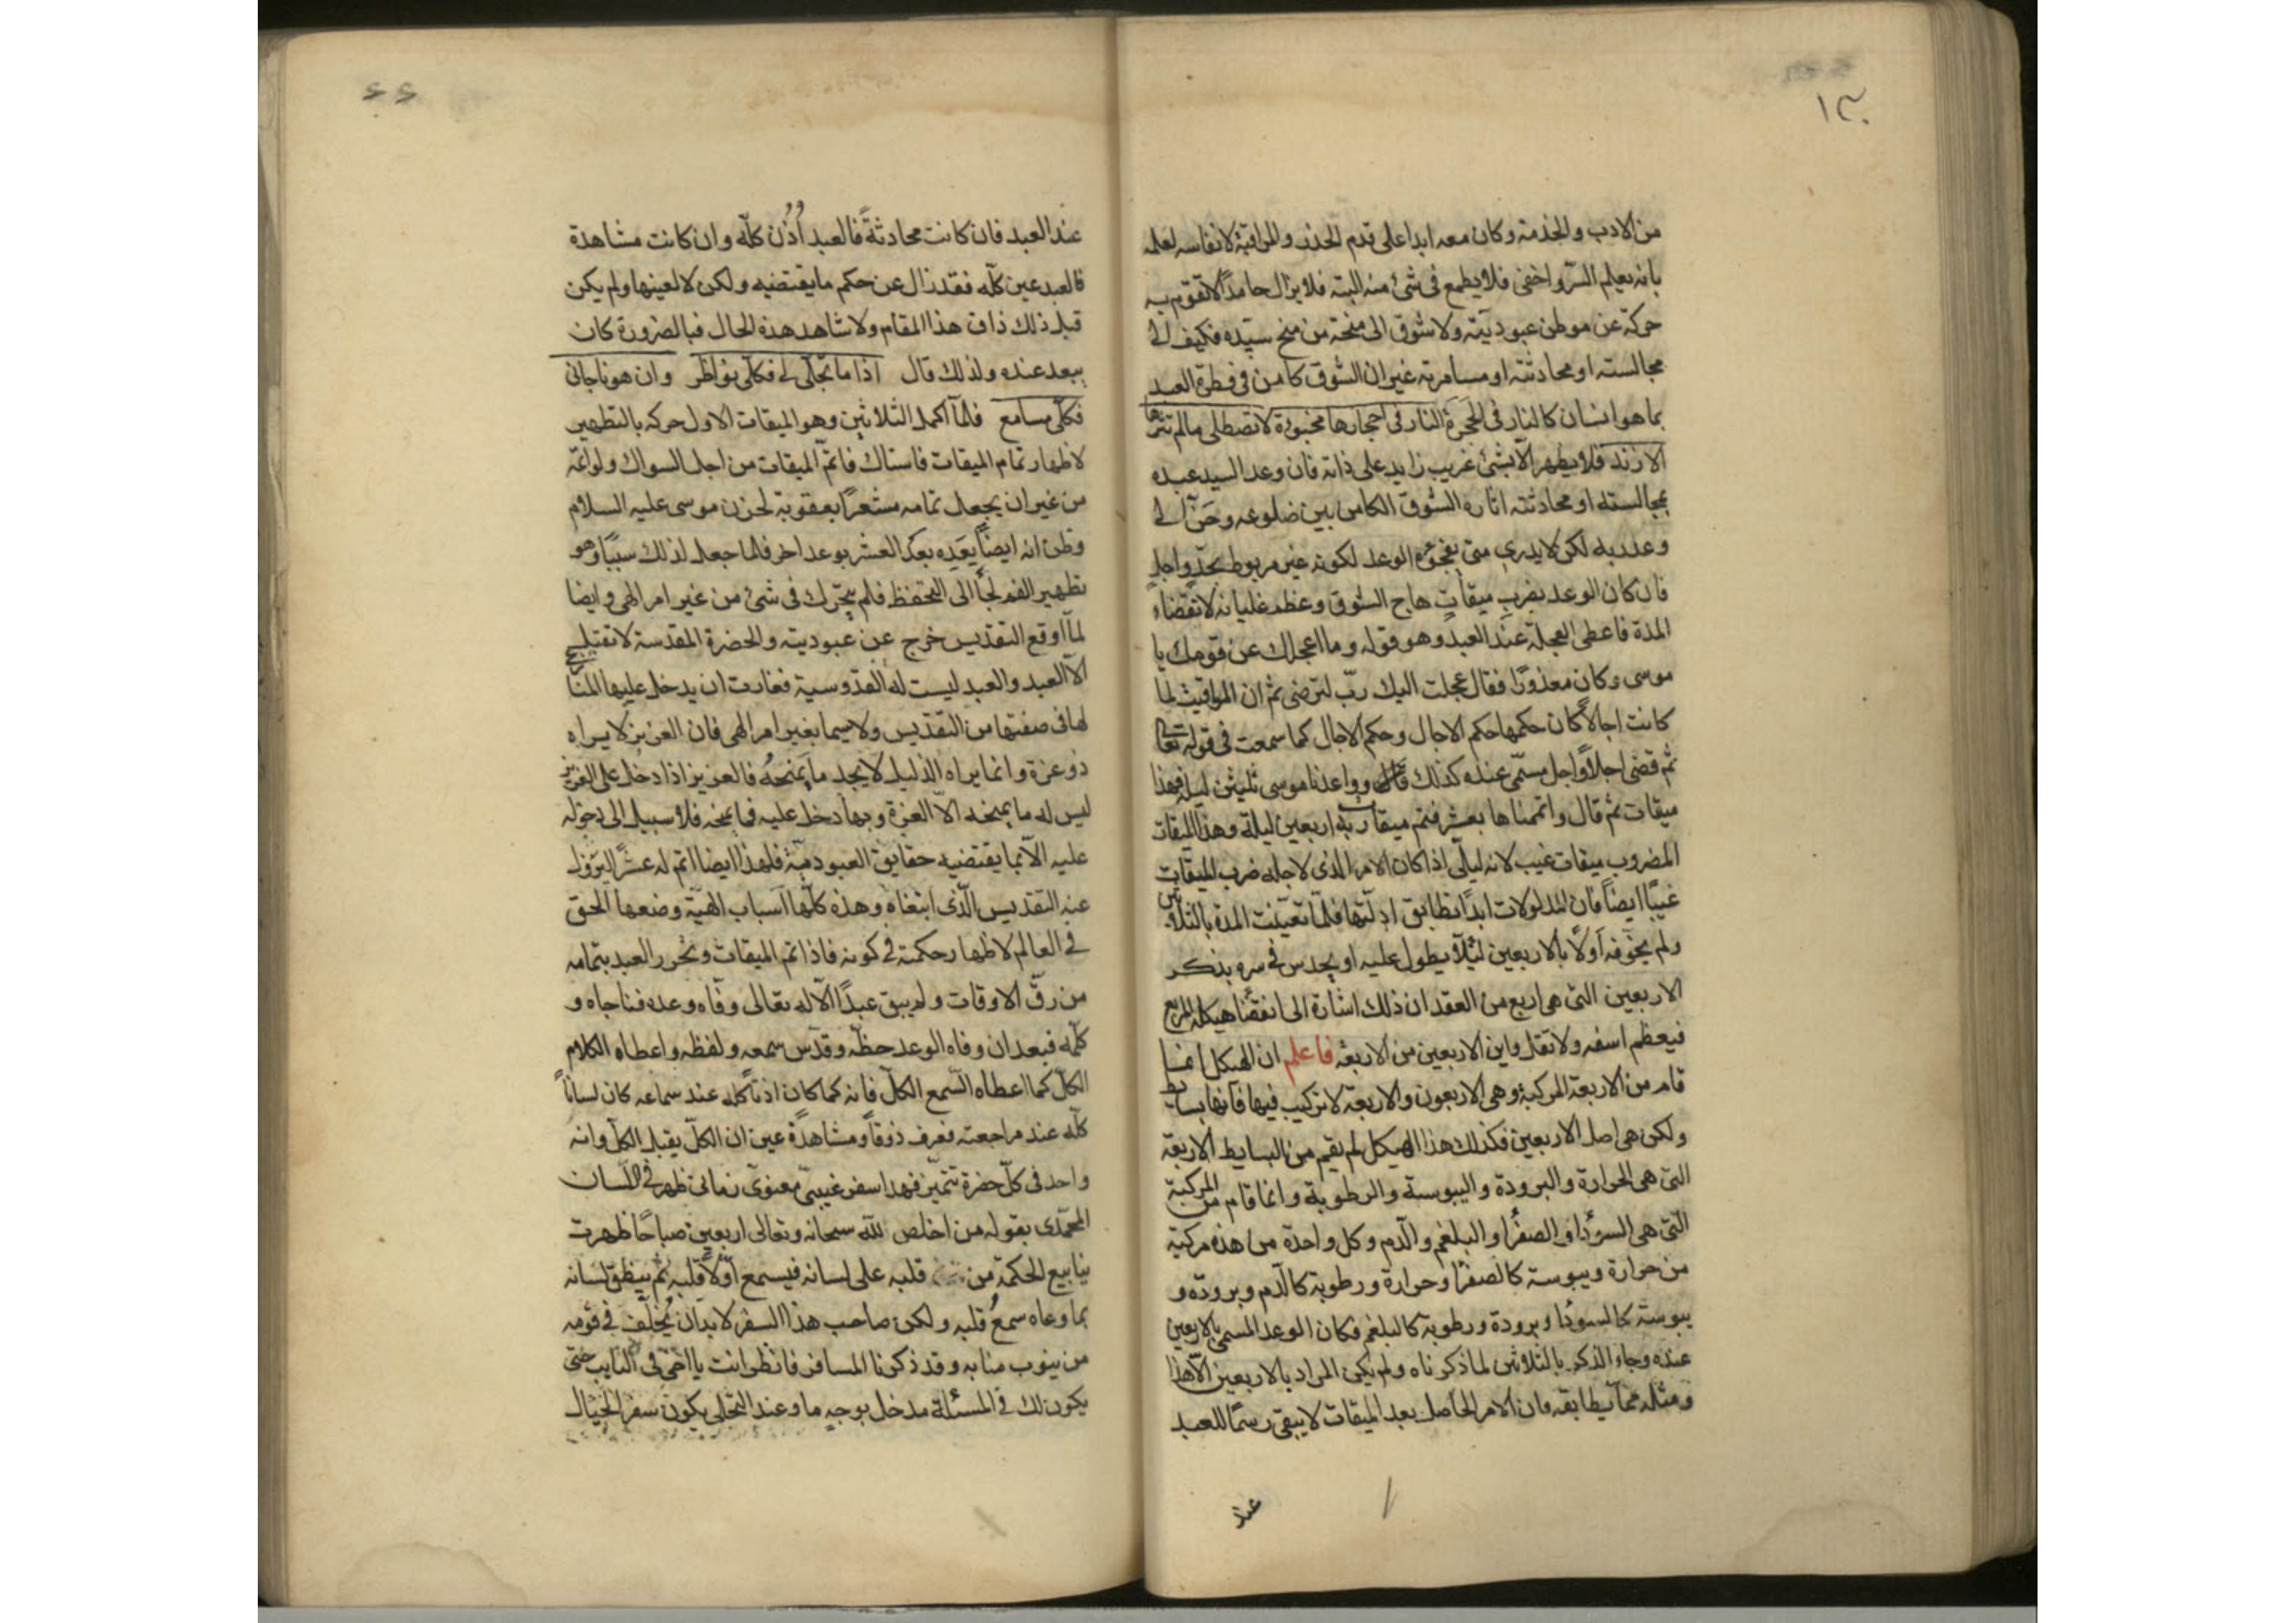 ١٣٠
من الادب والخدمة وكان معه ابدا على قدم الحذر والمراقبة لانفاسه لعلمه
بانه يعلم السرّ واخفى فلا يطمع فى شئ منه البتة فلا يزال حامدًا لا تقوم به
حركة عن موطن عبوديّته ولا شوق الى منحة من منح سيّده فكيف الى
مجالسته او محادثته او مسامرته غير ان الشوق كامن فى فطرة العبد
بما هو انسان كالنار فى الحَجَرة النار فى احجارها مخبوءة لا تصطلى ما لم تثرها
الازند فلا يظهر الّا بشئ غريب زايد على ذاته فان وعد السيد عبده
بمجالسته او محادثته اثاره الشوق الكامن بين ضلوعه وحَنّ الى
وعد ربه لكن لا يدرى متى يفجؤه الوعد لكونه غير مربوط بحدّ واجل
فان كان الوعد بضرب ميقات هاج الشوق وعظم غليانه لانقضاء
المدة فاعطى العجلة عند العبد وهو قوله وما اعجلك عن قومك يا
موسى وكان معذورًا فقال عجلت اليك ربّ لترضى ثم ان المواقيت لما
كانت اجالاً كان حكمها حكم الاجال وحكم الاجال كما سمعت فى قوله تعالى
ثم قضى اجلاً واجل مسمّى عنده كذلك قال وواعدنا موسى ثلثين ليلة فهذا
ميقات ثم قال واتممناها بعشر فتم ميقات ربه اربعين ليلة وهذا الميقات
المضروب ميقات غيب لانه ليالى اذا كان الامر الذى لاجله ضرب الميقات
غيبًا ايضًا فان المدلولات ابدًا تطابق ادلّتها فلمّا تعيّنت المدة بالثلاثين
ولم يخوّفه اوّلًا بالاربعين لئلّا يطول عليه او يحدس فى سره بذكر
الاربعين التى هى اربع من العقد ان ذلك اشارة الى انقضاء هيكله المربع
فيعظم اسفه ولا تقل واين الاربعين من الاربعة فاعلم ان الهيكل انما
قام من الاربعة المركبة وهى الاربعون والاربعة لا تركيب فيها فانها بسايط
ولكن هى اصل الاربعين فكذلك هذا الهيكل لم يقم من البسايط الاربعة
التى هى الحرارة والبرودة واليبوسة والرطوبة وانما قام من المركبة
الّتى هى السودا والصفرا والبلغم والدّم وكل واحدة من هذه مركبة
من حرارة ويبوسة كالصفرا وحرارة ورطوبة كالدّم وبرودة و
يبوسة كالسودا وبرودة ورطوبة كالبلغم فكان الوعد المسمى بالاربعين
عنده وجاء الذكر بالثلاثين لما ذكرناه ولم يكن المراد بالاربعين الّا هذا
ومثله ممّا يطابقه فان الامر الحاصل بعد الميقات لا يبقى رسمًا للعبد
عند
عند العبد فان كانت محادثةً فالعبد أُذُن كلّه وان كانت مشاهدة
فالعبد عين كلّه فقد زال عن حكم ما يقتضيه ولكن لا لعينها ولم يكن
قبل ذلك ذاق هذا المقام ولا شاهد هذه الحال فبالضرورة كان
يبعد عنده ولذلك قال اذا ما تجلّى لى فكلّى نواظر وان هو ناجانى
فكلّى مسامع فلمّا اكمل الثلاثين وهو الميقات الاول حركه بالتطهير
لاظهار تمام الميقات فاستاك فاتمّ الميقات من اجل السواك ولو اتمّه
من غير ان يجعل تمامه مشعرًا بعقوبة لحزن موسى عليه السلام
وظن انه ايضًا يعَدِه بعد العشر بوعد اخر فلما جعل لذلك سببًا وهو
تطهير الفم لجأ الى التحفظ فلم يتحرّك فى شئ من غير امر الهى وايضا
لمّا اوقع التقديس خرج عن عبوديته والحضرة المقدسة لا تقبل
الّا العبد والعبد ليست له القدوسية فغارت ان يدخل عليها المنازع
لها فى صفتها من التقديس ولا سيما بغير امر الهى فان العزيز لا يراه
ذو عزة وانما يراه الذليل لا يجد ما يَمنحهُ فالعزيز اذا دخل على العزيز
ليس له ما يمنحه الّا العزة وبها دخل عليه فما يمنحه فلا سبيل الى دخوله
عليه الّا بما يقتضيه حقايق العبوديّة فلهذا ايضا اتم له عشرًا ليزول
عنه التقديس الّذى ابتغاه وهذه كلّها اسباب الهيّة وضعها الحق
فى العالم لاظهار حكمته فى كونه فاذا تم الميقات وتحرر العبد بتمامه
من رقّ الاوقات ولم يبق عبدًا الّا له تعالى وفّاه وعده فناجاه و
كلّمه فبعد ان وفاه الوعد حظّه وقدّس سمعه ولفظه واعطاه الكلام
الكلّ كما اعطاه السّمع الكلّ فانه كما كان اذنًا كله عند سماعه كان لسانًا
كلّه عند مراجعته فعرف ذوقًا ومشاهدةً عين ان الكلّ يقبل الكلّ وانه
واحد فى كلّ حضرة تتميّز فهذا سفر غيبىّ معنوىّ زمانى ظهر فى اللسان
المحمّدى بقوله من اخلص للّه سبحانه وتعالى اربعين صباحًا ظهرت
ينابيع الحكمة من قلبه على لسانه فيسمع اوّلاً قلبه ثم ينطق لسانه
بما وعاه سمعُ قلبه ولكن صاحب هذا السفر لا بد ان يُخلّف فى قومه
من ينوب منابه وقد ذكرنا المسافر فانظر انت يا اخى فى النايب حتى
يكون لك فى المسئلة مدخل بوجهٍ ما وعند التجلى يكون سفر الجبال